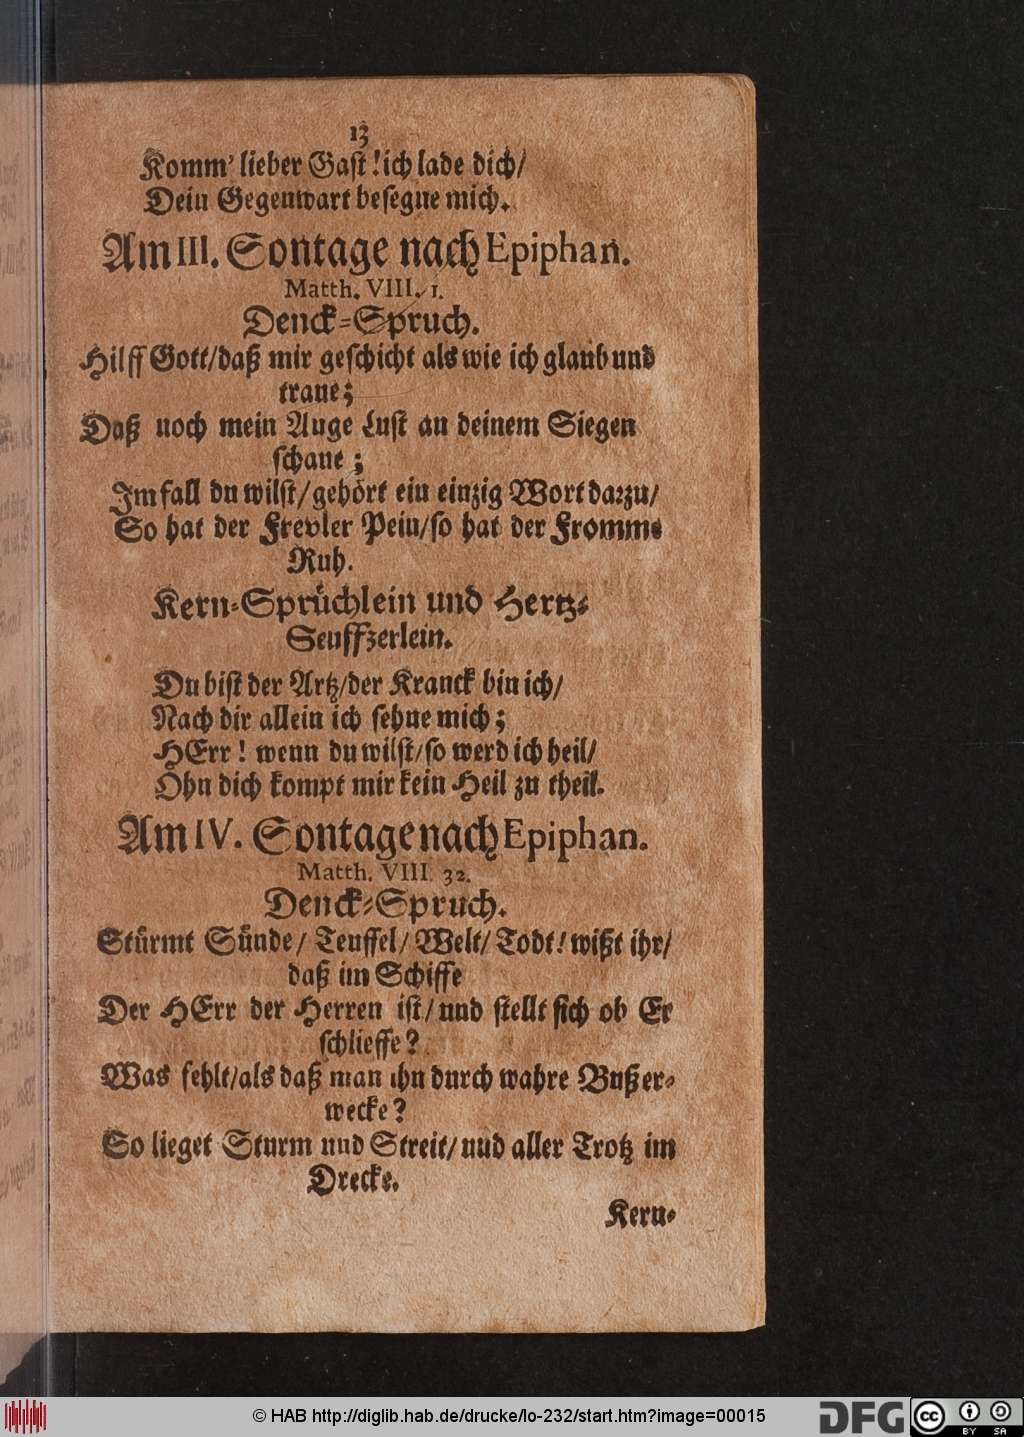 13
Komm' lieber Gast! ich lade dich/
Dein Gegenwart besegne mich.
Am III. Sontage nach Epiphan.
Matth. VIII. 1.
Denck-Spruch.
Hilff Gott/daß mir geschicht als wie ich glaub und
traue;
Daß noch mein Auge Lust an deinem Siegen
schaue;
Im fall du wilst/gehört ein einzig Wort darzu/
So hat der Frevler Pein/so hat der Fromme
Ruh.
Kern-Sprüchlein und Hertz-
Seuffzerlein.
Du bist der Artz/der Kranck bin ich/
Nach dir allein ich sehne mich;
HErr! wenn du wilst/so werd ich heil/
Ohn dich kompt mir kein Heil zu theil.
Am IV. Sontage nach Epiphan.
Matth. VIII. 32.
Denck-Spruch.
Stürmt Sünde/ Teuffel/ Welt/ Todt! wißt ihr/
daß im Schiffe
Der HErr der Herren ist/und stellt sich ob Er
schlieffe?
Was fehlt/als daß man ihn durch wahre Buß er-
wecke?
So lieget Sturm und Streit/und aller Trotz im
Drecke.
Kern-
© HAB http://diglib.hab.de/drucke/lo-232/start.htm?image=00015
DFG
cc
BY SA